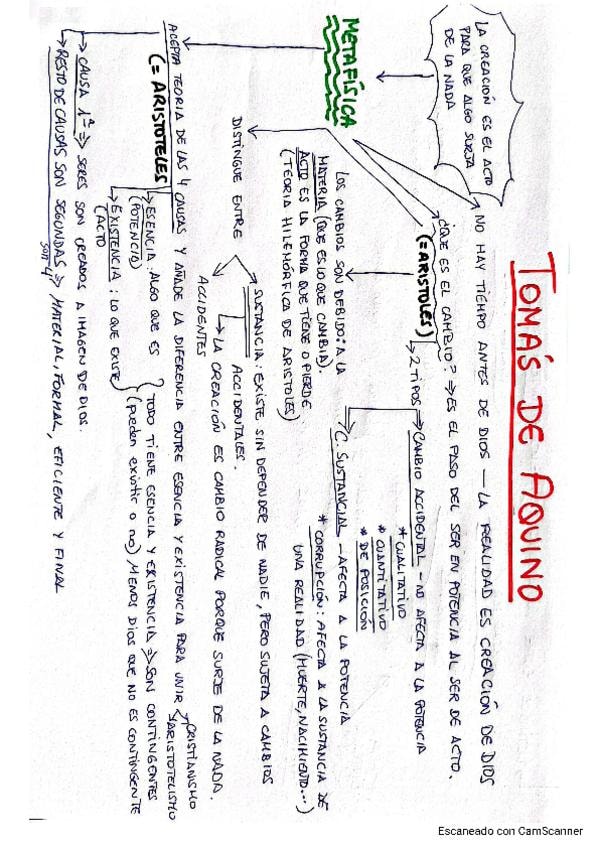 TOMÁS DE AQUINO
LA CREACIÓN ES EL ACTO
PARA QUE ALGO SURJA
DE LA NADA
METAFÍSICA
NO HAY TIEMPO ANTES DE DIOS — LA REALIDAD ES CREACIÓN DE DIOS
¿QUE ES EL CAMBIO? => ES EL PASO DEL SER EN POTENCIA AL SER DE ACTO.
(= ARISTOLES)
2 TIPOS
CAMBIO ACCIDENTAL - NO AFECTA A LA POTENCIA
* CUALITATIVO
* CUANTITATIVO
* DE POSICIÓN
C. SUSTANCIAL - AFECTA A LA POTENCIA
* CORRUPCIÓN: AFECTA A LA SUSTANCIA DE
UNA REALIDAD (MUERTE, NACIMIENTO...)
LOS CAMBIOS SON DEBIDO: A LA
MATERIA (QUE ES LO QUE CAMBIA).
ACTO ES LA FORMA QUE TIENE O PIERDE.
(TEORÍA HILEMÓRFICA DE ARISTOLES)
DISTINGUE ENTRE
SUSTANCIA: EXISTE SIN DEPENDER DE NADIE, PERO SUJETA A CAMBIOS
ACCIDENTALES.
LA CREACIÓN ES CAMBIO RADICAL PORQUE SURJE DE LA NADA.
ACCIDENTES
ACEPTA TEORÍA DE LAS 4 CAUSAS Y AÑADE LA DIFERENCIA ENTRE ESENCIA Y EXISTENCIA PARA UNIR
CRISTIANISMO
ARISTOTELISMO
(= ARISTOTELES)
ESENCIA: ALGO QUE ES
(POTENCIA)
EXISTENCIA: LO QUE EXISTE
(ACTO
TODO TIENE ESENCIA Y EXISTENCIA => SON CONTINGENTES
(pueden existir o no) MENOS DIOS QUE NO ES CONTINGENTE
CAUSA 1ª => SERES SON CREADOS A IMAGEN DE DIOS.
RESTO DE CAUSAS SON SEGUNDAS => MATERIAL, FORMAL, EFICIENTE Y FINAL
son 4
Escaneado con CamScanner